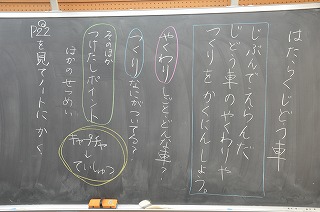 はたらくじどう車
じぶんでえらんだ
じどう車のやくわりや
つくりをかくにんしよう。
やくわり しごと・どんな車?
つくり なにがついてる?
そのほか
つけたしポイント
ほかのせつめい
キャラチャ
↓
ていしゅつ
P22を見てノートにかく